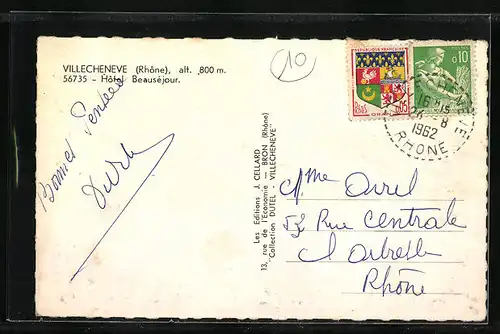 VILLECHENEVE (Rhône), alt. 800 m.
56735 - Hôtel Beauséjour.
10
RÉPUBLIQUE FRANÇAISE
0,05
ORAN
0,10
16-15
-8
1962
RHONE
Bonnes Pensées
Les Editions J. CELLARD
13, rue de l'Economie - BRON (Rhône)
"Collection DUTEL - VILLECHENEVE"
Mme Avril
52 Rue Centrale
L'Arbresle
Rhône